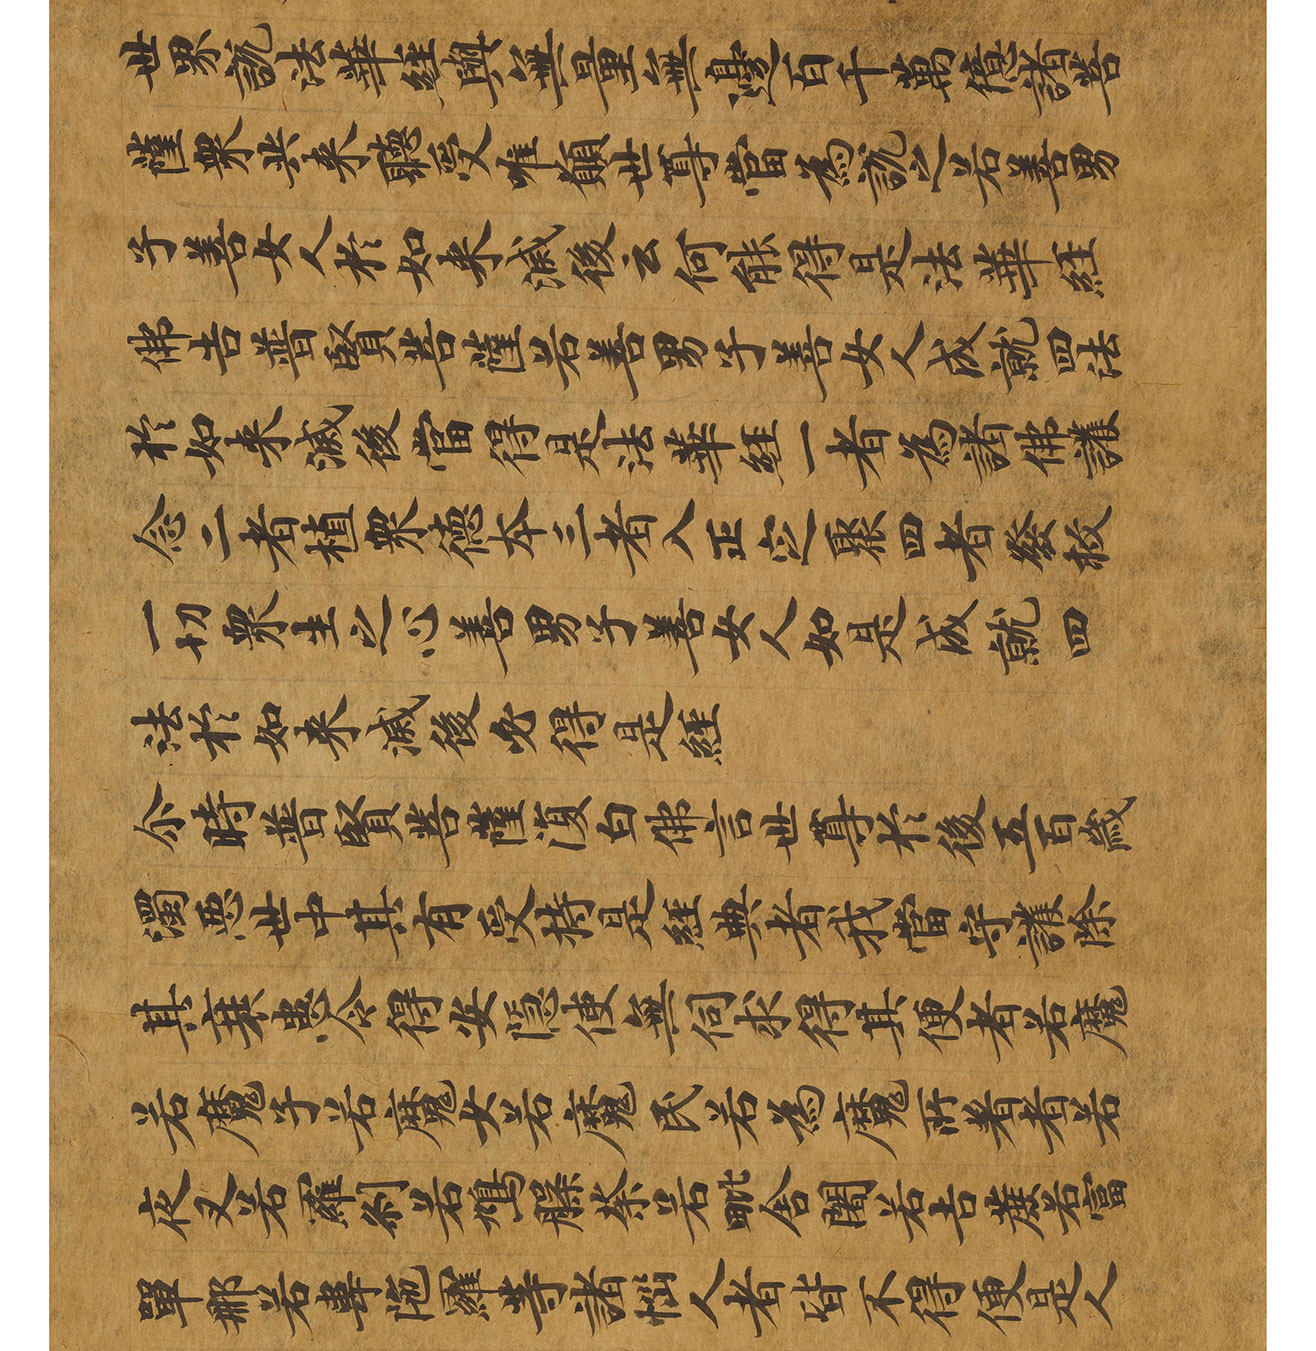 世界說法華經與無量無邊百千萬億諸菩
薩衆共来聽受唯願世尊當為說之若善男
子善女人於如来滅後云何能得是法華經
佛告普賢菩薩若善男子善女人成就四法
於如来滅後當得是法華經一者為諸佛護
念二者植衆德本三者入正定聚四者發救
一切衆生之心善男子善女人如是成就四
法於如来滅後必得是經
尒時普賢菩薩復白佛言世尊於後五百歲
濁惡世中其有受持是經典者我當守護除
其衰患令得安隱使無伺求得其便者若魔
若魔子若魔女若魔民若為魔所著者若
夜叉若羅刹若鳩槃荼若毗舍闍若吉蔗若富
單那若韋陀羅等諸惱人者皆不得便是人